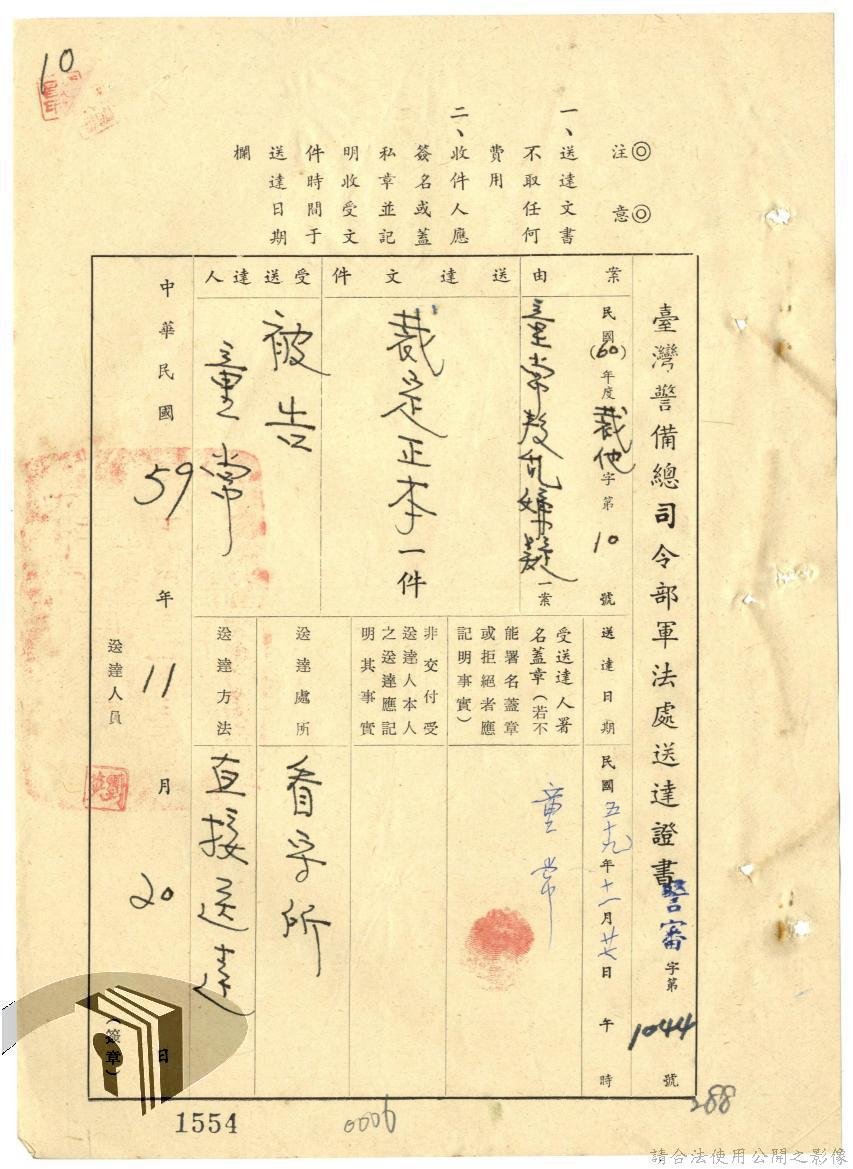 10
◎注意◎
一、送達文書
不取任何
費用
二、收件人應
簽名或蓋
私章並記
明收受文
件時間于
送達日期
欄
臺灣警備總司令部軍法處送達證書
警審字第1044號
案由
民國(60)年度裁他字第10號
童常叛乱嫌疑一案
送達文件
裁定正本一件
受送達人
被告
童常
送達日期
民國五十九年十一月廿七日 午 時
受送達人署
名蓋章(若不
能署名蓋章
或拒絕者應
記明事實)
童常
非交付受
送達人本人
之送達應記
明其事實
送達處所
看守所
送達方法
直接送達
中華民國59年11月20日
送達人員
(簽章)
1554
0006
288
請合法使用公開之影像